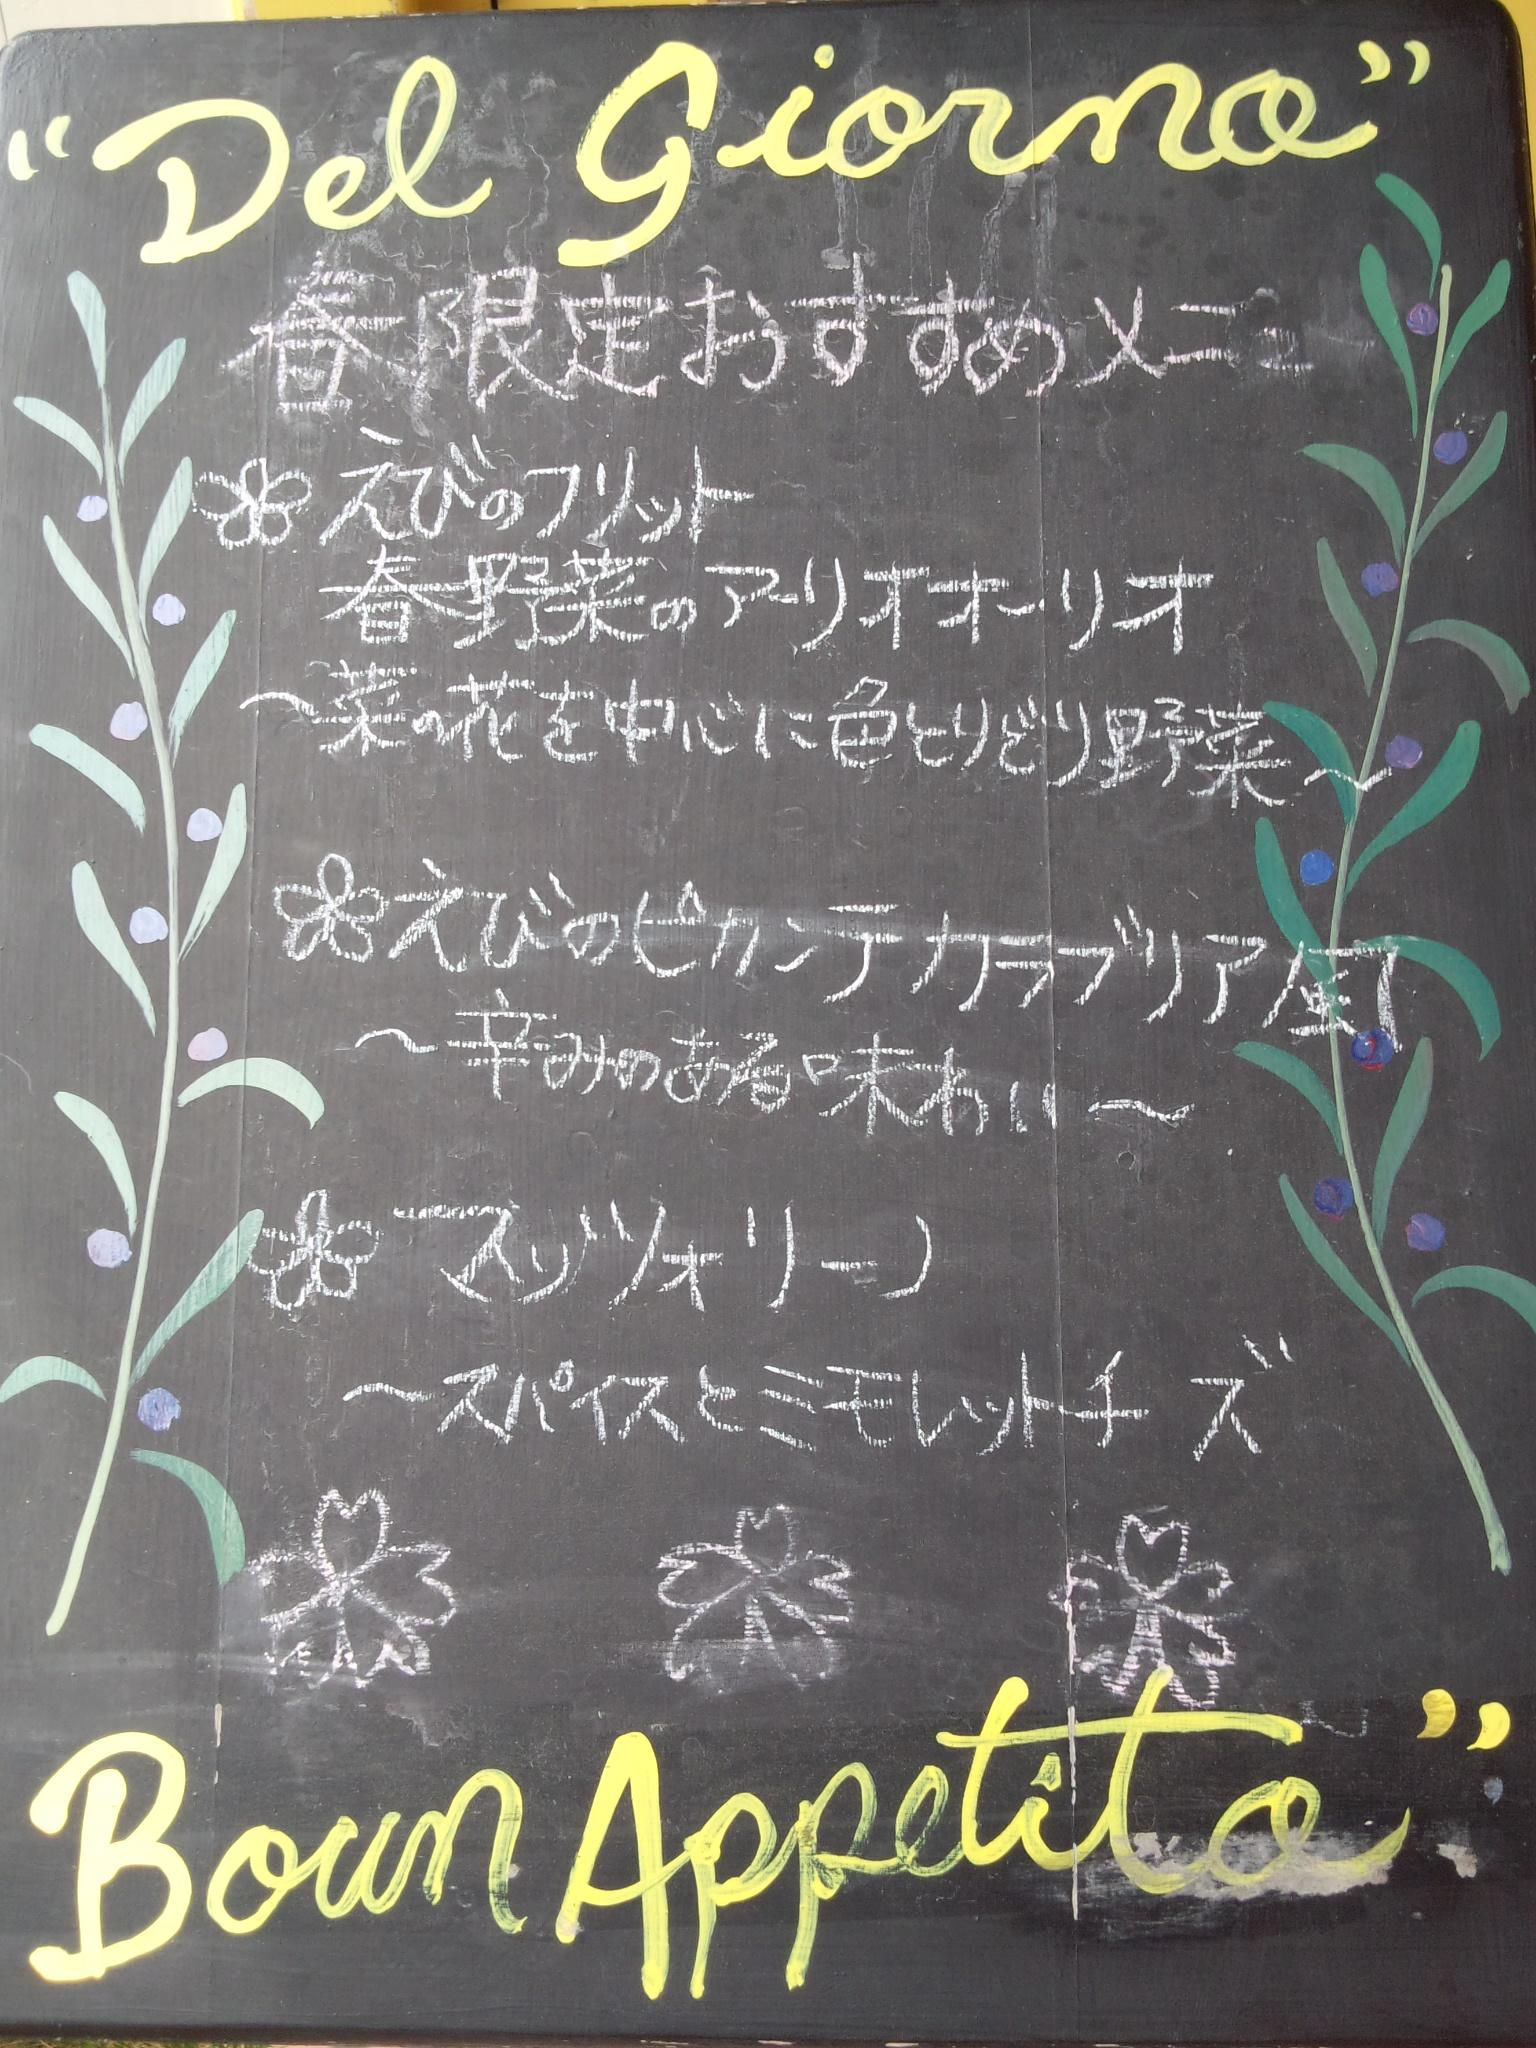 "Del Giorno"
春限定おすすめメニュ
えびのフリット
春野菜のアーリオオーリオ
～菜の花を中心に色とりどり野菜～
えびのピカンテカラブリア風
～辛みのある味わい～
マッツォリーノ
～スパイスとミモレットチ ズ
Boun Appetito"